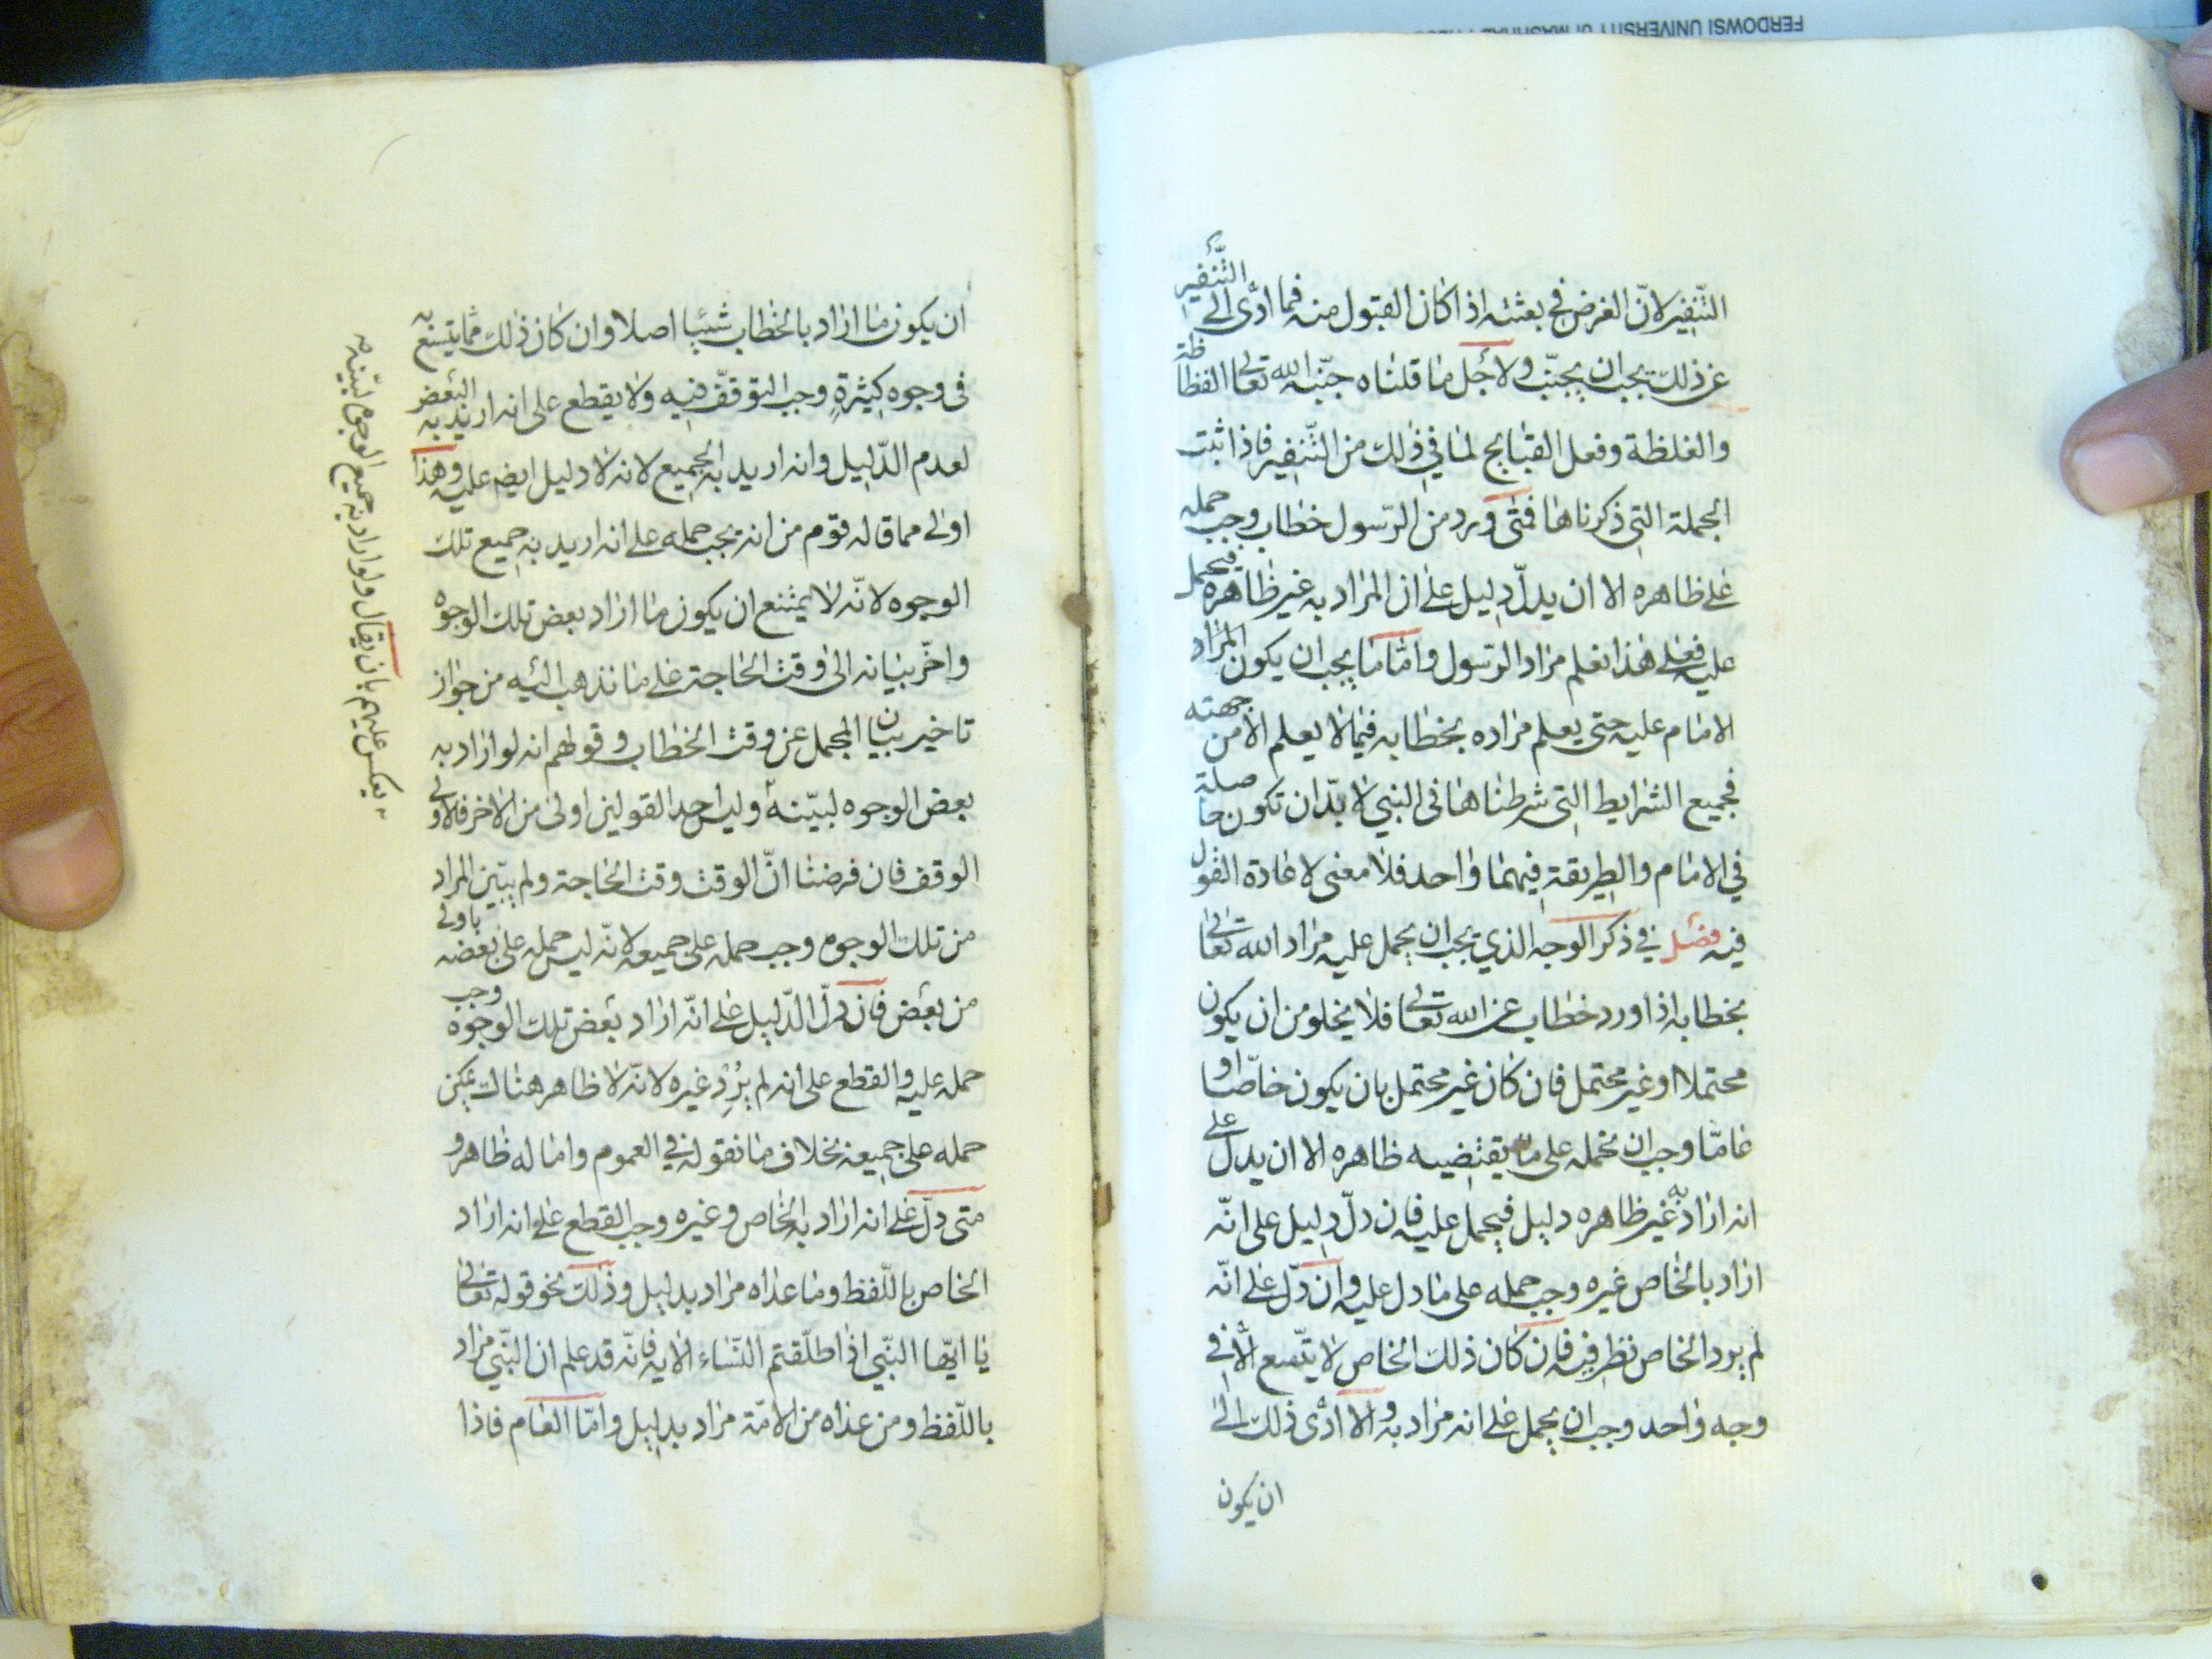 FERDOWSI UNIVERSITY of MASHHAD
التّنفير لانّ الغرض في بعثته اذا كان القبول منه فما ادّى الى التّنفير
عن ذلك يجب ان يجنّب ولاجل ما قلناه جنّبه الله تعالى الفظاظة
والغلظة وفعل القبايح لما في ذلك من التّنفير فاذا ثبت
الجملة التي ذكرناها فمتى ورد من الرّسول خطاب وجب حمله
على ظاهره الا ان يدلّ دليل على ان المراد به غير ظاهره فيحمل
عليه فعلى هذا نعلم مراد الرّسول وامّا ما يجب ان يكون
الامام عليه حتى يعلم مراده بخطابه فيما لا يعلم الا من جهته
فجميع الشرايط التي شرطناها في النبي لا بدّ ان تكون حاصلة
في الامام والطريقة فيهما واحد فلا معنى لاعادة القول
فيه فصل في ذكر الوجه الذي يجب ان يحمل عليه مراد الله تعالى
بخطابه اذا ورد خطاب عن الله تعالى فلا يخلو من ان يكون
محتملا او غير محتمل فان كان غير محتمل بان يكون خاصّا او
عامّا وجب ان نحمله على ما يقتضيه ظاهره الا ان يدل على
انه اراد به غير ظاهره دليل فيحمل عليه فان دلّ دليل على انّه
اراد بالخاص غيره وجب حمله على ما دل عليه وان دلّ على انّه
لم يرد الخاص نظر فيه فان كان ذلك الخاص لا يتّسع الّا في
وجه واحد وجب ان يحمل على انه مراد به والا ادّى ذلك الى
ان يكون
ان يكون ما اراد بالخطاب شيئا اصلا وان كان ذلك ممّا يتسع به
في وجوه كثيرة وجب التوقّف فيه ولا يقطع على انه اريد به البعض
لعدم الدّليل وانه اريد به الجميع لانه لا دليل ايضا عليه وهذا
اولى مما قاله قوم من انه يجب حمله على انه اريد به جميع تلك
الوجوه لانّه لا يمتنع ان يكون ما اراد بعض تلك الوجوه
واخّر بيانه الى وقت الحاجة على ما نذهب اليه من جواز
تاخير بيان المجمل عن وقت الخطاب وقولهم انه لو اراد به
بعض الوجوه لبيّنه وليس احد القولين اولى من الاخر فالاولى
الوقف فان فرضنا انّ الوقت وقت الحاجة ولم يبيّن المراد
من تلك الوجوه وجب حمله على جميعه لانّه ليس حمله على بعضه باولى
من بعض فان دلّ الدّليل على انّه اراد بعض تلك الوجوه وجب
حمله عليه والقطع على انه لم يُرِد غيره لانّه لا ظاهر هناك يمكن
حمله على جميعه بخلاف ما نقوله في العموم واما له ظاهر و
متى دلّ على انه اراد به الخاص وغيره وجب القطع على انه اراد
الخاص باللّفظ وما عداه مراد بدليل وذلك نحو قوله تعالى
يا ايّها النّبي اذا طلّقتم النّساء الايه فانّه قد علم ان النّبي مراد
باللّفظ ومن عداه من الامّة مراد بدليل وامّا العام فاذا
يعكس عليهم بان يقال ولو اراد به جميع الوجوه لبيّنه